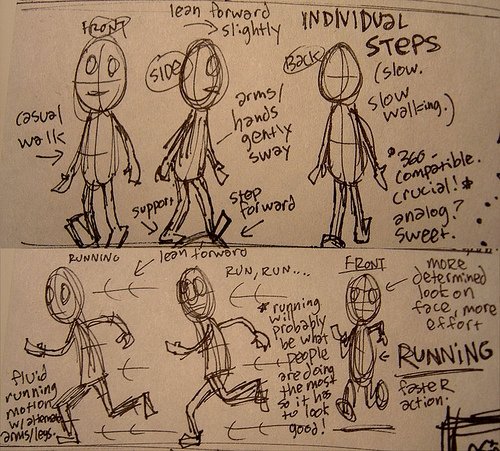 FRONT
lean forward
slightly
INDIVIDUAL
STEPS
(slow.
slow
walking.)
SIDE
BACK
casual
walk
arms/
hands
gently
sway
support
step
forward
*360-
compatible.
crucial!*
analog?
sweet.
RUNNING
lean forward
RUN, RUN....
*running
will
probably
be what
people
are doing
the most
so it has
to look
good!
FRONT
more
determined
look on
face, more
effort
RUNNING
faster
action.
fluid
running
motion
w/alternate
arms/legs.